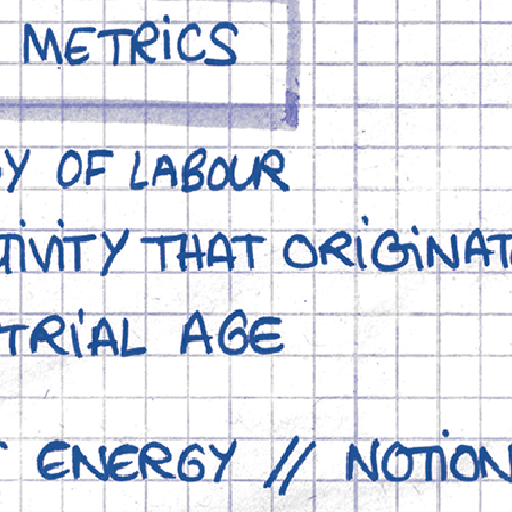 METRICS
Y OF LABOUR
TIVITY THAT ORIGINAT
TRIAL AGE
ENERGY // NOTION